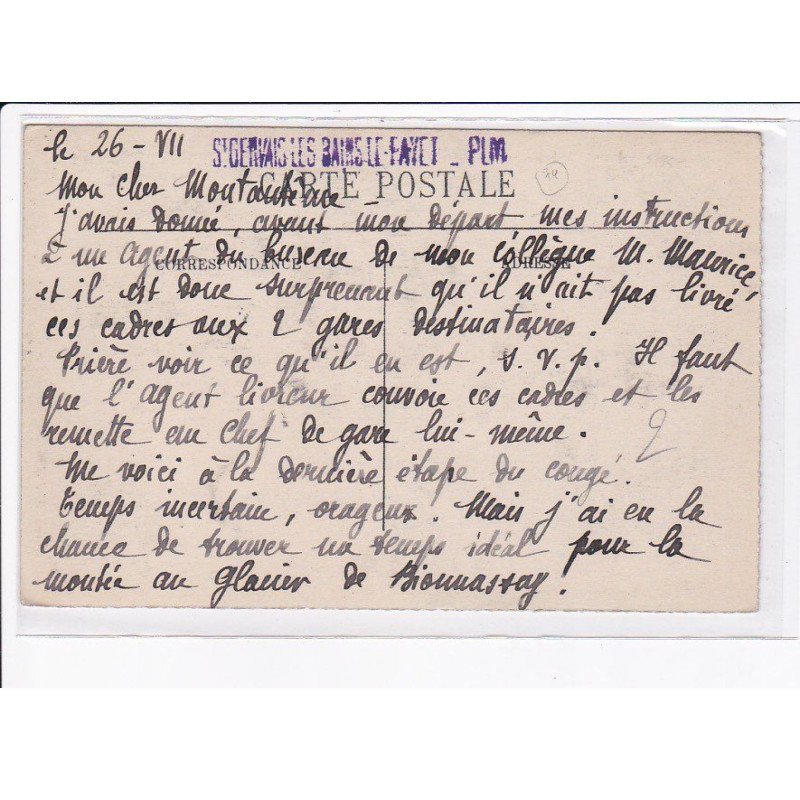 le 26-VII ST GERVAIS-LES BAINS-LE-FAYET - PLM
CARTE POSTALE
Mon cher
J'avais donné, avant mon départ mes instructions
à un agent du bureau de mon collègue M. Maurice,
CORRESPONDANCE ADRESSE
et il est donc surprenant qu'il n'ait pas livré
ces cadres aux 2 gares destinataires.
Prière voir ce qu'il en est, s.v.p. Il faut
que l'agent livreur convoie ces cadres et les
remette au chef de gare lui-même.
2
Me voici à la dernière étape du congé.
Temps incertain, orageux. Mais j'ai eu la
chance de trouver un temps idéal pour la
montée au glacier de Bionnassay.